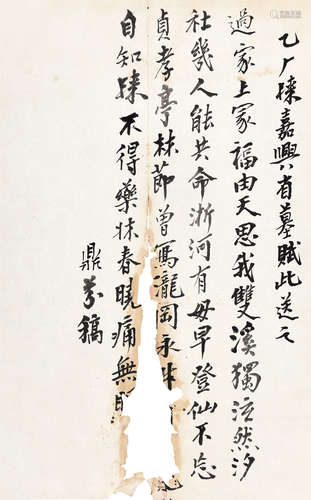 乙厂㨿嘉興省墓賦此送之
過家上冢福由天思我雙溪獨泫然汐
社幾人能共命浙河有母早登仙不忘
貞孝亭林節曾寫瀧岡永
自知 不得藥牀春曉痛無
鼎芬稿